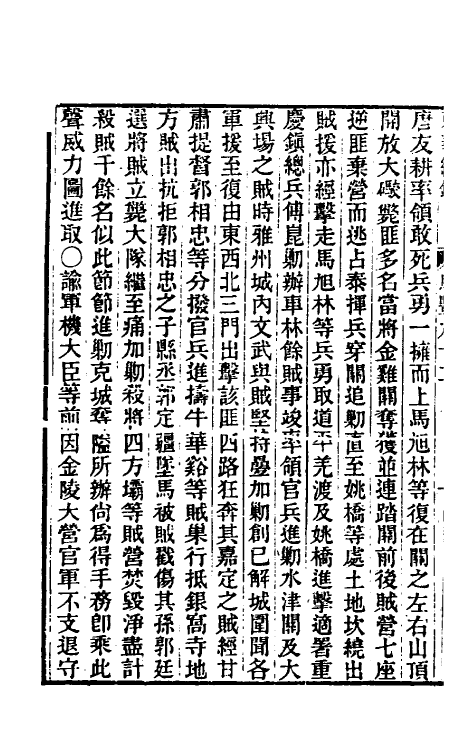 麿友耕率領敢死兵勇一擁而上馬旭林等復在關之左右山頂
開放大礮斃匪多名當將金雞關奪獲並連踏關前後賊營七座
逆匪棄營而逃占泰揮兵穿關追勦直至姚橋等處土地坎繞出
賊援亦經擊走馬旭林等兵勇取道平羌渡及姚橋進擊適署重
慶鎮總兵傅崑勦辦車林餘賊事竣率領官兵進勦水津關及大
興場之賊時雅州城內文武與賊堅持疊加勦創已解城圍聞各
軍援至復由東西北三門出擊該匪四路狂奔其嘉定之賊經甘
肅提督郭相忠等分撥官兵進擣牛華谿等賊巢行抵銀窩寺地
方賊出抗拒郭相忠之子縣丞郭定疆墜馬被賊戳傷其孫郭廷
選將賊立斃大隊繼至痛加勦殺將四方壩等賊營焚毀淨盡計
殺賊千餘名似此節節進勦克城奪隘所辦尚爲得手務卽乘此
聲威力圖進取〇諭軍機大臣等前因金陵大營官軍不支退守